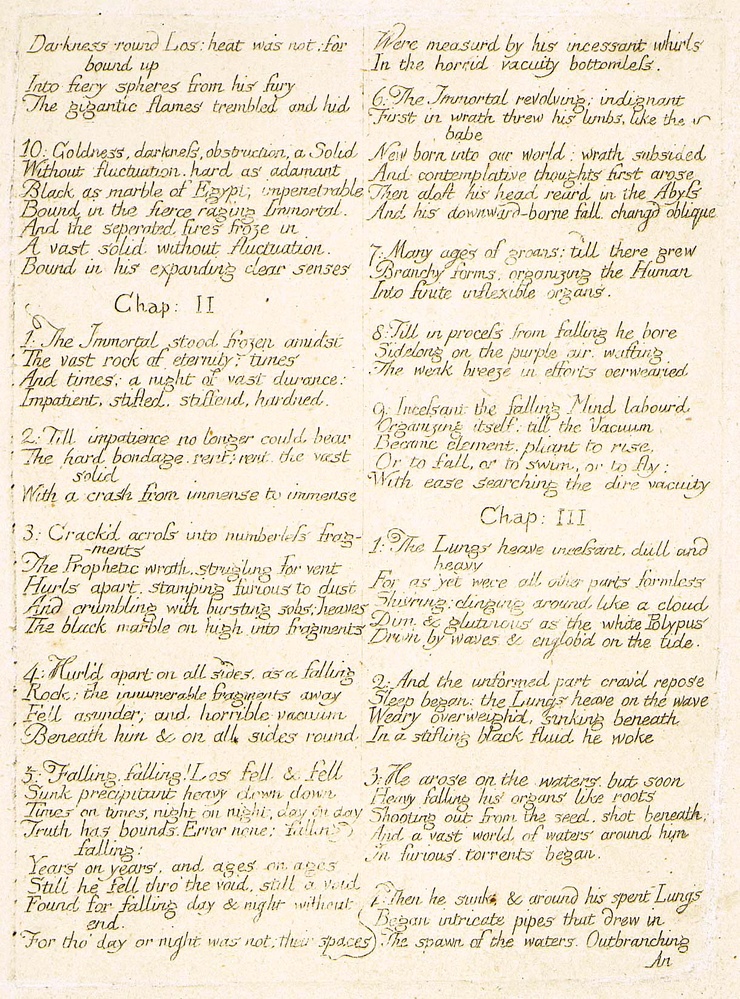 Darkness round Los: heat was not; for
bound up
Into fiery spheres from his fury
The gigantic flames trembled and hid
10: Coldness, darkness, obstruction, a Solid
Without fluctuation, hard as adamant
Black as marble of Egypt; impenetrable
Bound in the fierce raging Immortal.
And the seperated fires froze in
A vast solid without fluctuation.
Bound in his expanding clear senses
Chap: II
1: The Immortal stood frozen amidst
The vast rock of eternity; times
And times; a night of vast durance:
Impatient, stifled, stiffend, hardned.
2: Till impatience no longer could bear
The hard bondage, rent; rent, the vast
solid
With a crash from immense to immense
3: Crack'd across into numberless frag-
-ments
The Prophetic wrath, strugling for vent
Hurls apart, stamping furious to dust
And crumbling with bursting sobs; heaves
The black marble on high into fragments
4: Hurl'd apart on all sides, as a falling
Rock; the innumerable fragments away
Fell asunder; and horrible vacuum
Beneath him & on all sides round.
5: Falling, falling! Los fell & fell
Sunk precipitant heavy down down
Times on times, night on night, day on day
Truth has bounds. Error none: falling,
falling:
Years on years, and ages on ages
Still he fell thro' the void, still a void
Found for falling day & night without
end.
For tho' day or night was not; their spaces
Were measurd by his incessant whirls
In the horrid vacuity bottomless.
6: The Immortal revolving; indignant
First in wrath threw his limbs, like the
babe
New born into our world: wrath subsided
And contemplative thoughts first arose
Then aloft his head reard in the Abyss
And his downward-borne fall, chang'd oblique
7: Many ages of groans: till there grew
Branchy forms, organizing the Human
Into finite inflexible organs.
8: Till in process from falling he bore
Sidelong on the purple air, wafting
The weak breeze in efforts oerwearied
9: Incessant the falling Mind labour'd
Organizing itself: till the Vacuum
Became element, pliant to rise,
Or to fall, or to swim, or to fly:
With ease searching the dire vacuity
Chap: III
1: The Lungs heave incessant, dull and
heavy
For as yet were all other parts formless
Shiv'ring: clinging around like a cloud
Dim & glutinous as the white Polypus
Driv'n by waves & englob'd on the tide.
2: And the unformed part crav'd repose
Sleep began: the Lungs heave on the wave
Weary overweigh'd, sinking beneath
In a stifling black fluid he woke
3: He arose on the waters, but soon
Heavy falling his organs like roots
Shooting out from the seed, shot beneath,
And a vast world of waters around him
In furious torrents began.
4: Then he sunk, & around his spent Lungs
Began intricate pipes that drew in
The spawn of the waters. Outbranching
An